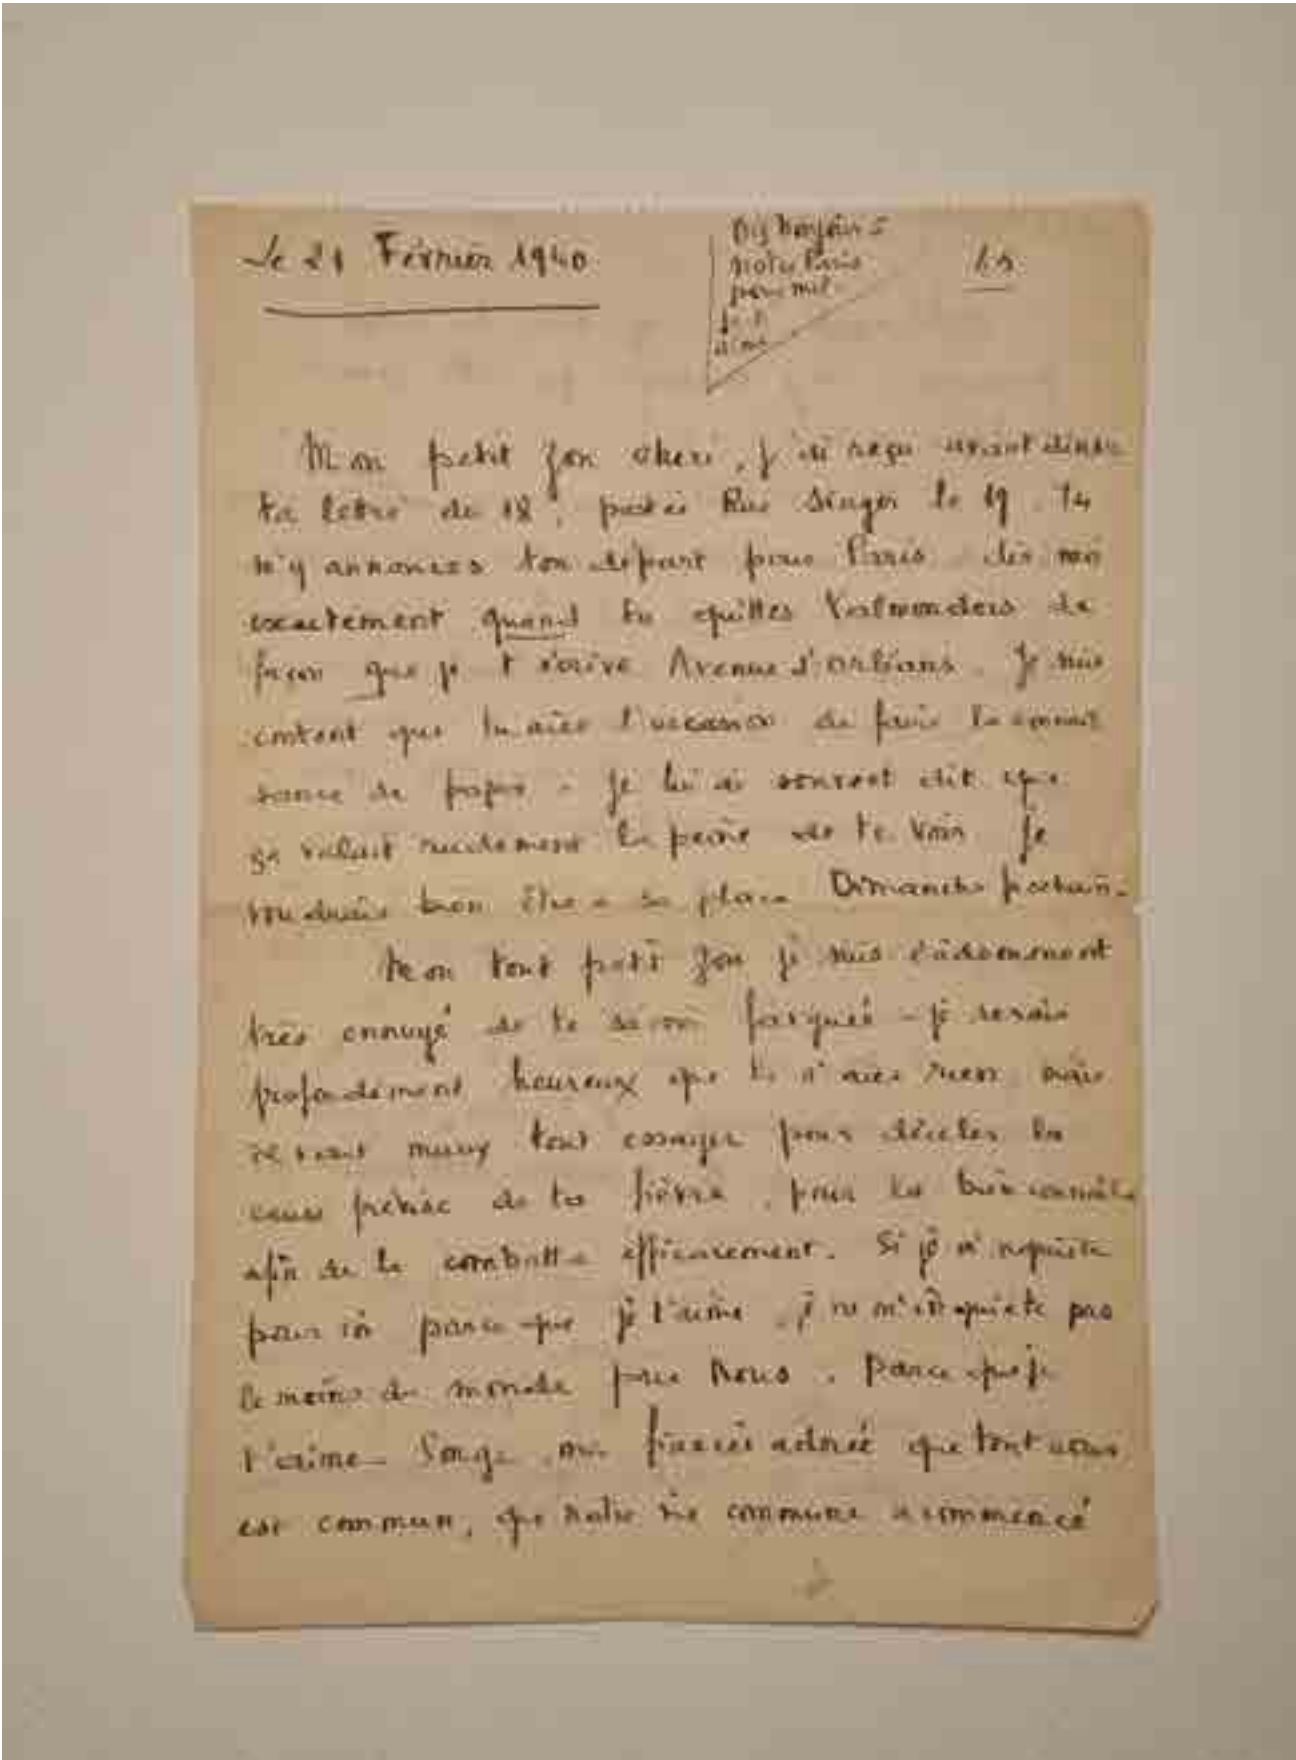 Le 21 Février 1940
Dis bonjour à
notre Paris
pour moi
je t'
aime
Mon petit Jon cheri, j'ai reçu avant diner
ta lettre du 18, postée Rue Singer le 19. Tu
m'y annonces ton départ pour Paris. dis moi
exactement quand tu quittes Valmondois de
façon que je t'écrive Avenue d'Orléans. Je suis
content que tu aies l'occasion de faire la connais
sance de papa - Je lui ai souvent dit que
ça valait rudement la peine de te voir Je
voudrais bien être à sa place Dimanche prochain.
Mon tout petit Jon je suis évidemment
très ennuyé de te savoir fatiguée - je serais
profondément heureux que tu n'aies rien mais
il vaut mieux tout essayer pour déceler la
cause précise de ta fièvre, pour la bien connaitre
afin de la combattre efficacement. Si je m'inquiète
pour toi parce que je t'aime, je ne m'inquiète pas
le moins du monde pour Nous. Parce que je
t'aime. Songe, ma fiancée adorée que tout nous
est commun, que notre vie commune a commencé